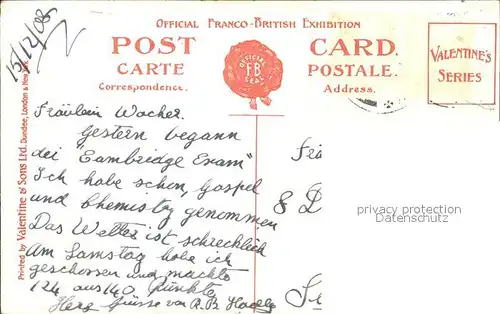 15/12/08
OFFICIAL FRANCO-BRITISH EXHIBITION
POST CARD.
CARTE POSTALE.
Correspondence. Address.
OFFICIAL
F.B
SEAL
VALENTINE'S
SERIES
Printed by Valentine & Sons Ltd. Dundee, London & New York
Fräulein Wacher.
Gestern begann
dei Cambridge Exam"
Ich habe schon Gospel
und Chemistry genommen
Das Wetter ist schrechlich
Am Samstag habe ich
geschossen und machte
124 aus 140 Punkte
Herz Grüsse von R.B.
Frä
8 D
privacy protection
Datenschutz